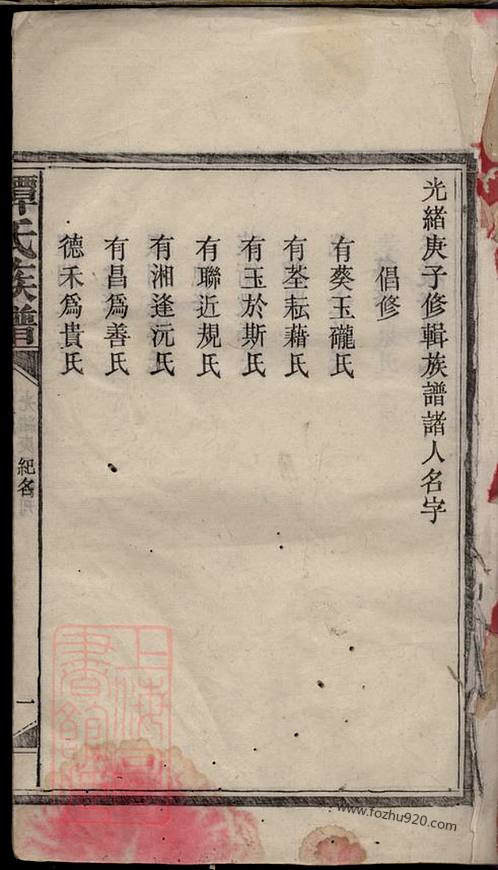 光緒庚子修輯族譜諸人名字
倡修
有葵玉礲氏
有荃耘藉氏
有玉於斯氏
有聯近規氏
有湘逢沅氏
有昌為善氏
德禾為貴氏
譚氏族譜
紀名
一
上海
書館
www.fozhu920.com